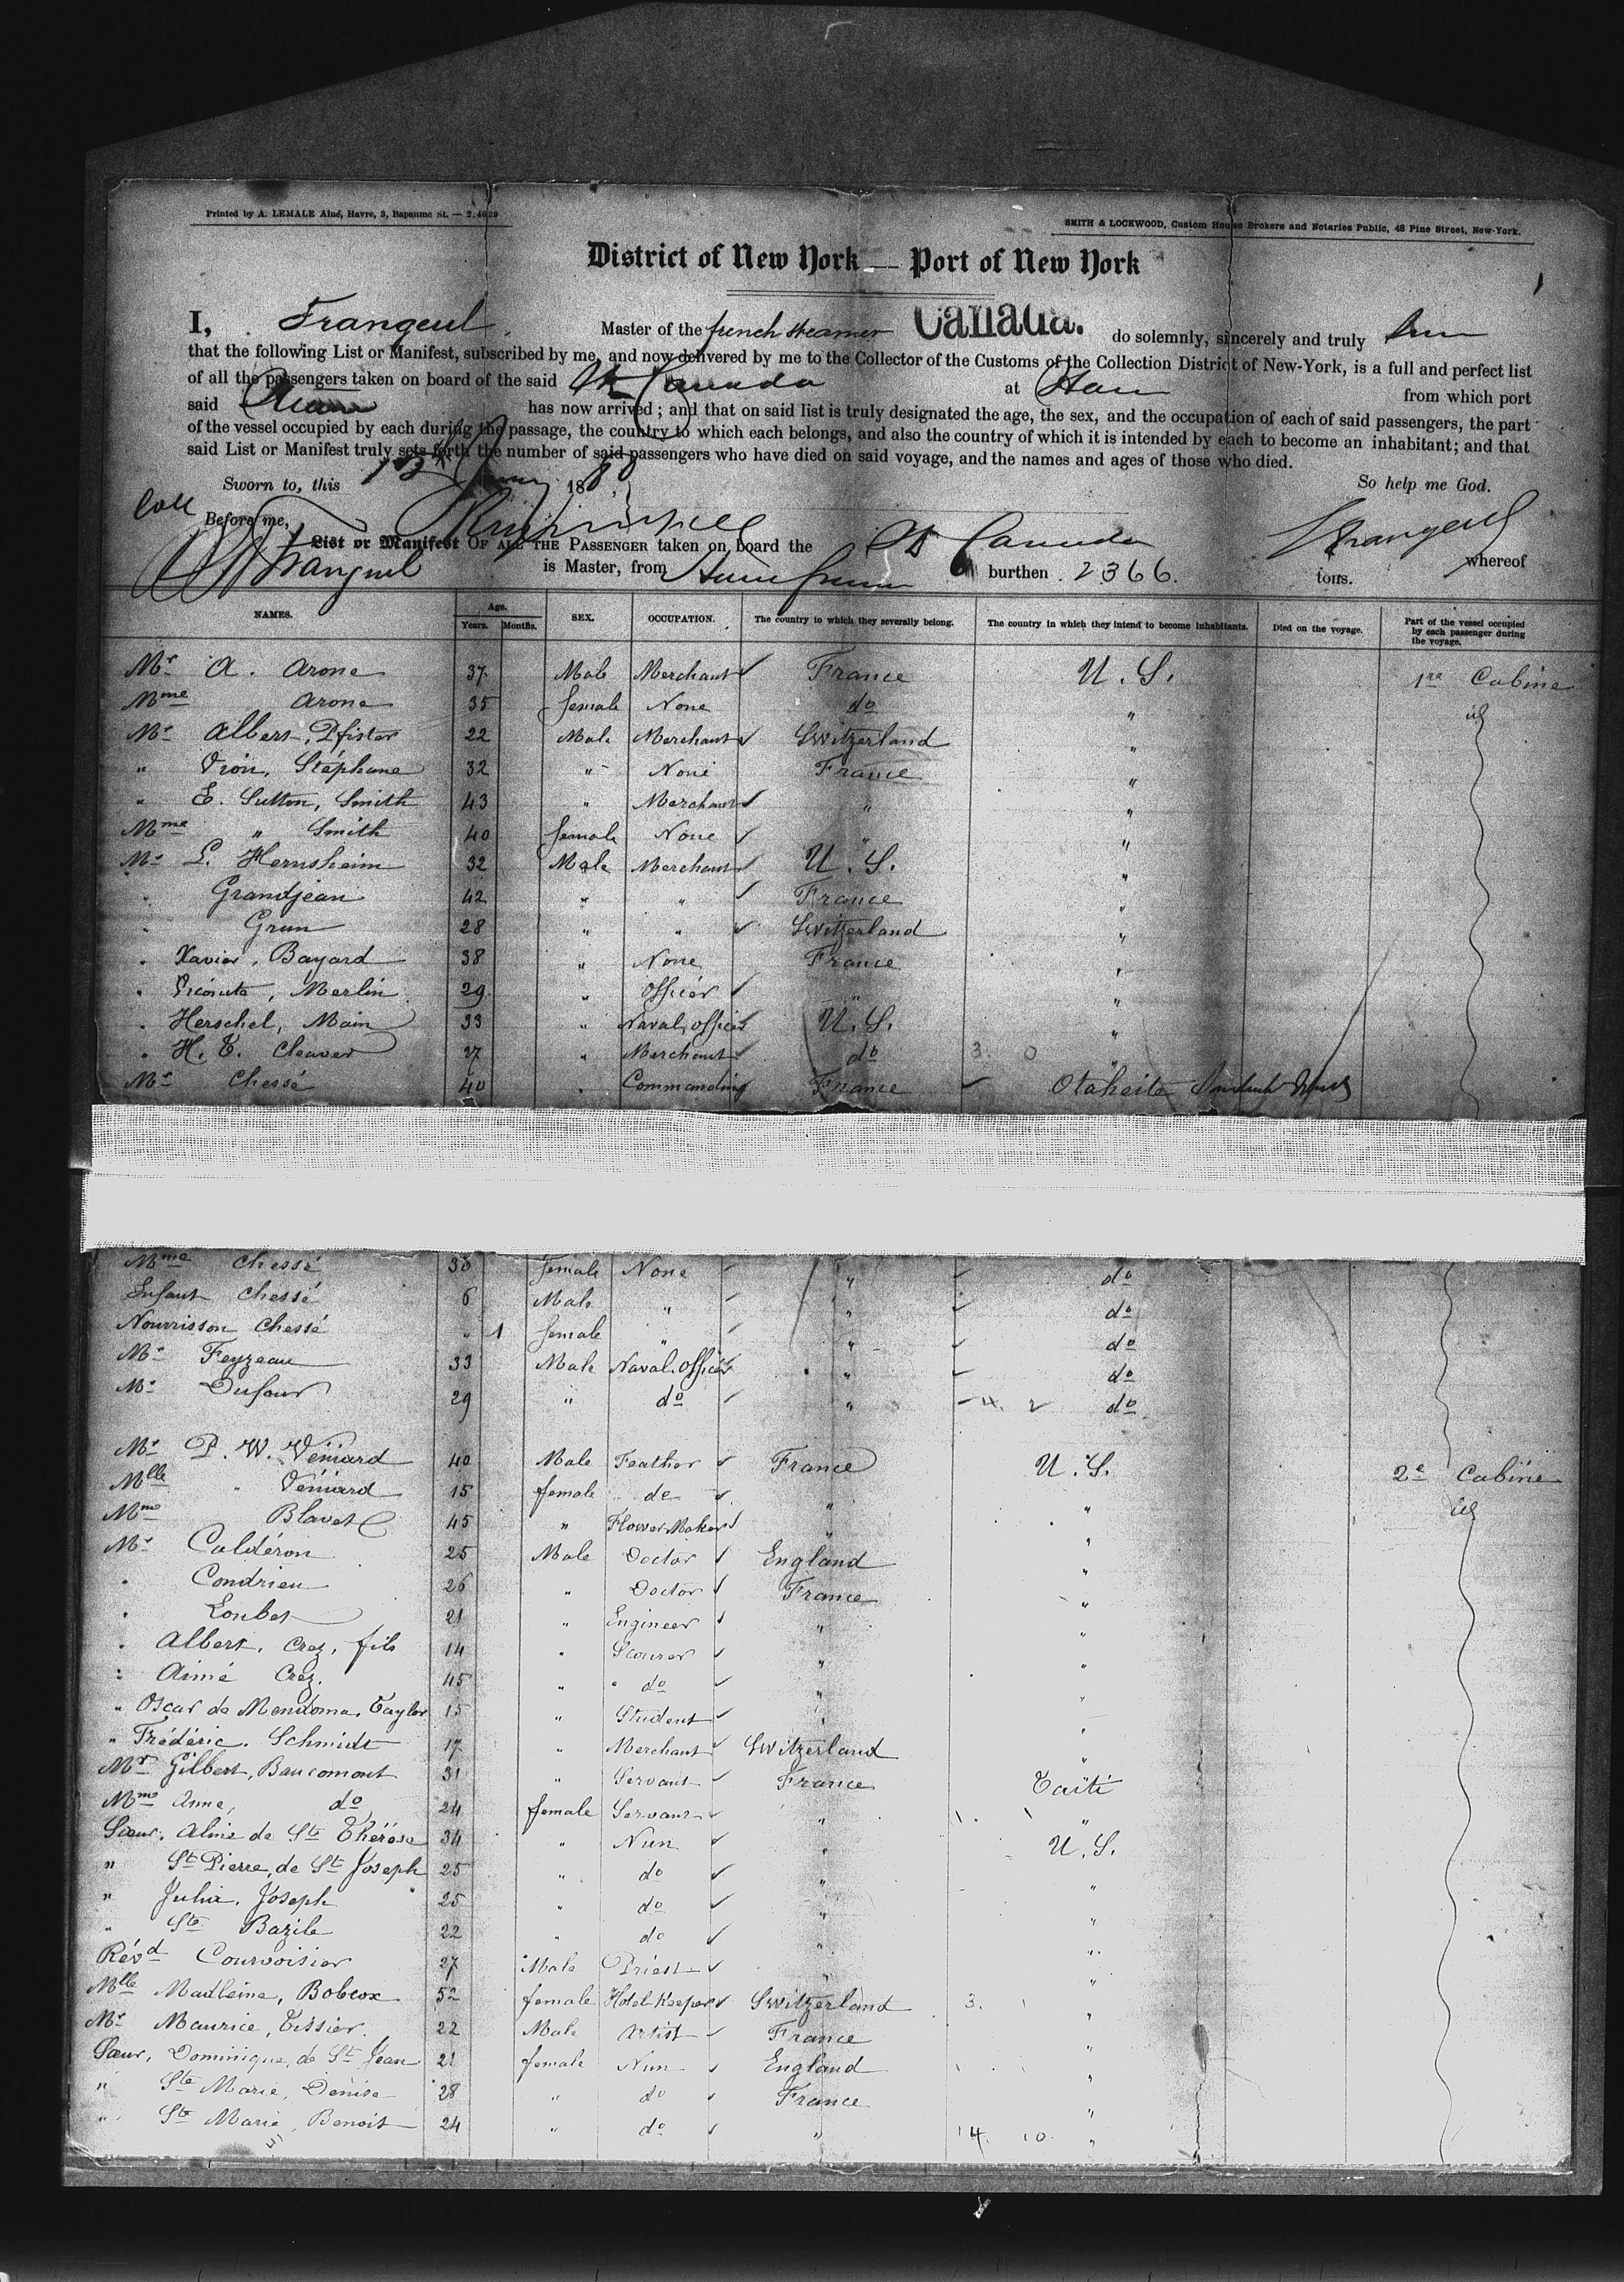 Printed by A. LEMALE Aîné, Havre, 3, Bapaume St. — 2.4029
SMITH & LOCKWOOD, Custom House Brokers and Notaries Public, 48 Pine Street, New-York.
District of New York — Port of New York
I, Frangeul, Master of the french steamer Canada. do solemnly, sincerely and truly
that the following List or Manifest, subscribed by me, and now delivered by me to the Collector of the Customs of the Collection District of New-York, is a full and perfect list
of all the passengers taken on board of the said Canada at from which port
said has now arrived; and that on said list is truly designated the age, the sex, and the occupation of each of said passengers, the part
of the vessel occupied by each during the passage, the country to which each belongs, and also the country of which it is intended by each to become an inhabitant; and that
said List or Manifest truly sets forth the number of said passengers who have died on said voyage, and the names and ages of those who died.
Sworn to, this 13th 1880 So help me God.
Before me,
Frangeul
List or Manifest OF ALL THE PASSENGER taken on board the Canada whereof
Frangeul is Master, from burthen 2366. tons.
NAMES. Age. Years. Months. SEX. OCCUPATION. The country to which they severally belong. The country in which they intend to become inhabitants. Died on the voyage. Part of the vessel occupied by each passenger during the voyage.
Mr A. Arone 37 Male Merchant France U.S. 1re Cabine
Mme Arone 35 female None do " id
Mr Albert, Pfister 22 Male Merchant Switzerland "
" Drion, Stéphane 32 " None France "
" E. Sutton, Smith 43 " Merchant " "
Mme " Smith 40 female None " "
Mr L. Hernsheim 32 Male Merchant U.S. "
" Grandjean 42 " " France "
" Grun 28 " " Switzerland "
" Xavier, Bayard 38 " None France "
" Vicomte, Merlin 29 " Officer " "
" Herschel, Main 33 " Naval officer U.S. "
" H. T. Cleaver 27 " Merchant do 3. 0 "
Mr Chessé 40 " Commanding France Otaheite
Mme Chessé 30 female None " do
Enfant Chessé 6 Male " " do
Nourrisson Chessé " 1 female " " do
Mr Feyzeau 33 Male Naval Officer " do
Mr Dufour 29 " do " 4. 2 do
Mr P. W. Véniard 40 Male Feather France U.S. 2e Cabine
Mlle " Véniard 15 female do " " id
Mme Blavet 45 " Flower Maker " "
Mr Caldéron 25 Male Doctor England "
" Condrieu 26 " Doctor France "
" Loubet 21 " Engineer " "
" Albert, Crez, fils 14 " Scourer " "
" Aimé Crez. 45 " do " "
" Oscar de Mendoma, Taylor 15 " Student " "
" Frédéric. Schmidt 17 " Merchant Switzerland "
Mr Gilbert, Baucomont 31 " Servant France Taïti
Mme Anne, do 24 female Servant " 1. "
Sœur, Aline de Ste Thérèse 34 " Nun " U.S.
" St Pierre, de St Joseph 25 " do " "
" Julia, Joseph 25 " do " "
" Ste Bazile 22 " do " "
Révd Courvoisier 27 Male Priest " "
Mlle Madleine, Bobcox 52 female Hotel Keeper Switzerland 3. 1 "
Mr Maurice, Tissier. 22 Male Artist France "
Sœur, Dominique, de St Jean 21 female Nun England "
" Ste Marie, Denise 28 " do France "
" Ste Marie, Benoit 24 " do " 14. 10. "